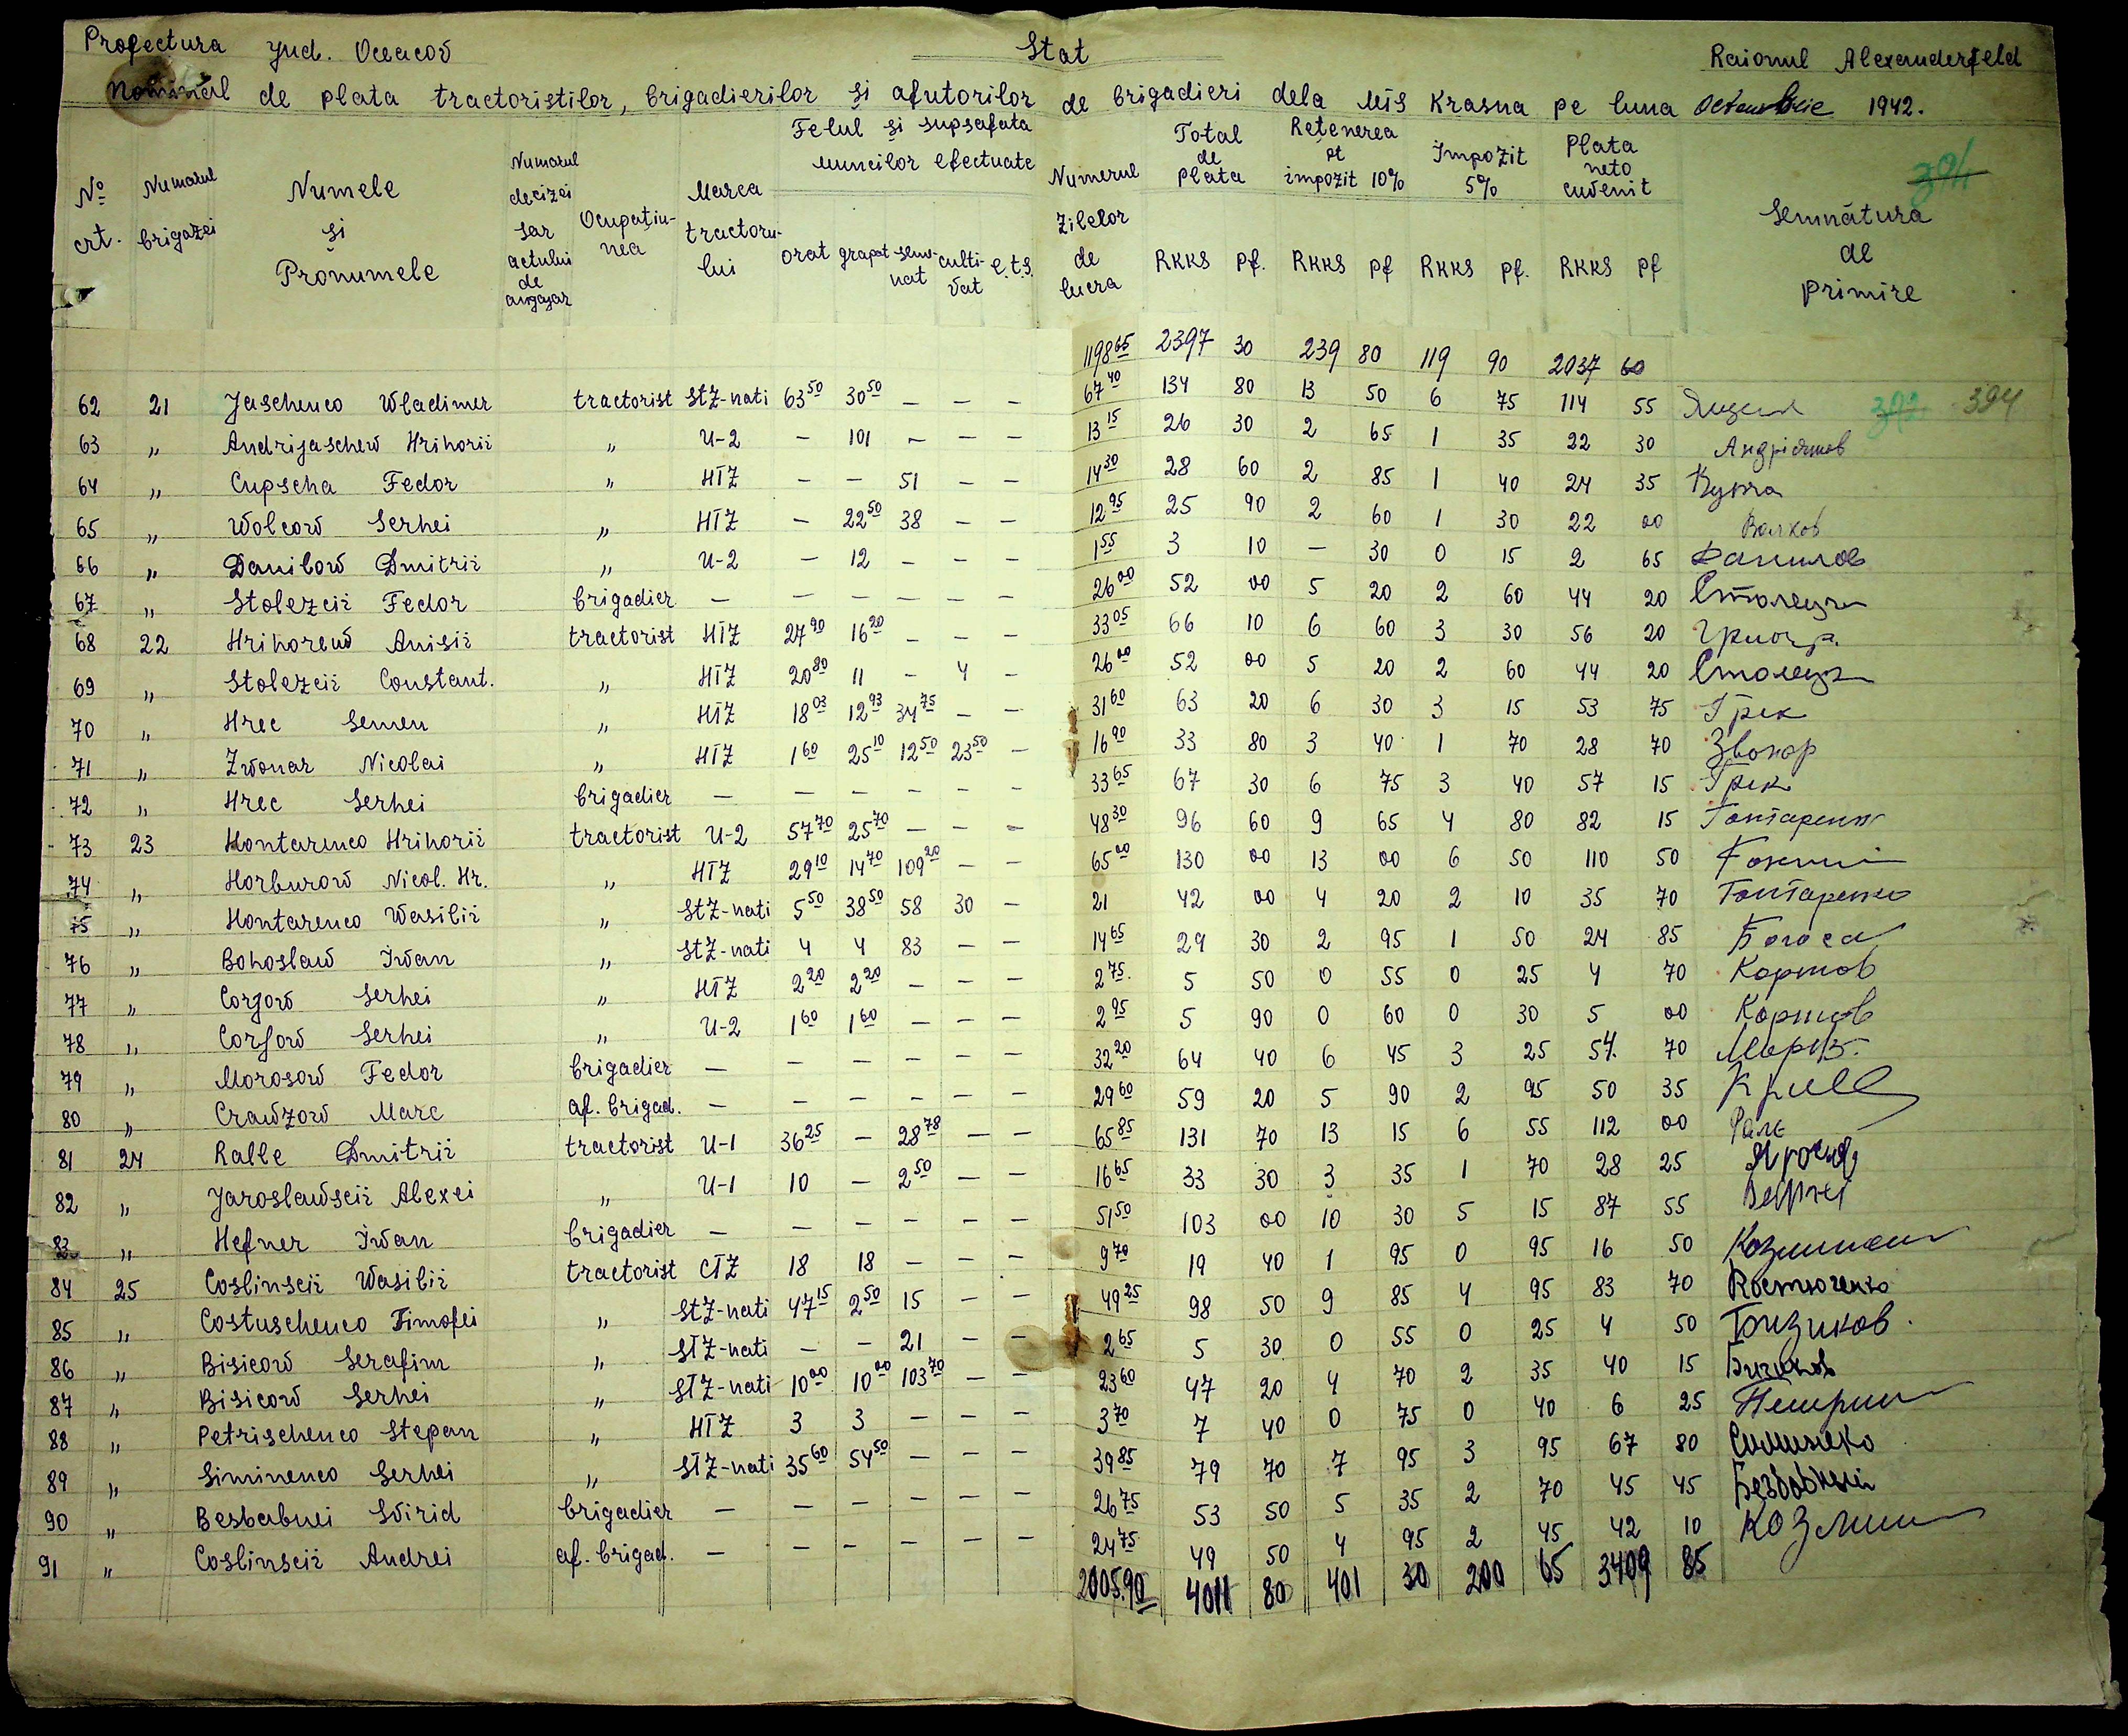 Profectura Jud. Oceacov Stat Raionul Alexanderfeld
Nominal de plata tractoristilor, brigadierilor și afutorilor de brigadieri dela MTS Krasna pe luna Octombrie 1942.
No crt. Numarul brigazei Numele și Pronumele Numarul decizei sar actului de angajar Ocupațiunea Marca tractorului Felul și supsafata muncilor efectuate orat grapat semonat cultivat e.t.s. Numerul zilelor de lucra Total de plata RKKS pf. Rețenerea pt impozit 10% RKKS pf Impozit 5% RKKS pf. Plata neto cuvenit RKKS pf Semnătura de primire
394
1198 65 2397 30 239 80 119 90 2037 60
62 21 Jaschenco Wladimer tractorist STZ-nati 63 50 30 50 — — — 67 40 134 80 13 50 6 75 114 55 394
63 „ Andrijaschew Hrihorii „ U-2 — 101 — — — 13 15 26 30 2 65 1 35 22 30 Андріяшов
64 „ Cupscha Fedor „ HTZ — — 51 — — 14 30 28 60 2 85 1 40 24 35 Купча
65 „ Wolcow Serhei „ HTZ — 22 50 38 — — 12 95 25 90 2 60 1 30 22 00 Волков
66 „ Danilow Dmitrii „ U-2 — 12 — — — 1 55 3 10 — 30 0 15 2 65 Данилов
67 „ Stolezcii Fedor brigadier — — — — — — 26 00 52 00 5 20 2 60 44 20 Столецк
68 22 Hrihorew Anisii tractorist HTZ 27 90 16 20 — — — 33 05 66 10 6 60 3 30 56 20
69 „ Stolezcii Constant. „ HTZ 20 80 11 — 4 — 26 00 52 00 5 20 2 60 44 20 Столецк
70 „ Hrec Semen „ HTZ 18 03 12 93 34 75 — — 31 60 63 20 6 30 3 15 53 75 Грек
71 „ Zwonar Nicolai „ HTZ 1 60 25 10 12 50 23 50 — 16 90 33 80 3 40 1 70 28 70 Звонор
72 „ Hrec Serhei brigadier — — — — — — 33 65 67 30 6 75 3 40 57 15 Грек
73 23 Hontarenco Hrihorii tractorist U-2 57 70 25 70 — — — 48 30 96 60 9 65 4 80 82 15 Гонтаренк
74 „ Horburow Nicol. Hr. „ HTZ 29 10 14 70 109 20 — — 65 00 130 00 13 00 6 50 110 50
75 „ Hontarenco Wasilii „ STZ-nati 5 50 38 50 58 30 — 21 42 00 4 20 2 10 35 70 Гонтаренко
76 „ Bohoslaw Iwan „ STZ-nati 4 4 83 — — 14 65 29 30 2 95 1 50 24 85 Богосл
77 „ Corjow Serhei „ HTZ 2 20 2 20 — — — 2 75 5 50 0 55 0 25 4 70 Коржов
78 „ Corjow Serhei „ U-2 1 60 1 60 — — — 2 95 5 90 0 60 0 30 5 00 Коржов
79 „ Morosow Fedor brigadier — — — — — — 32 20 64 40 6 45 3 25 54 70 Мороз.
80 „ Crawzow Marc af. brigad. — — — — — — 29 60 59 20 5 90 2 95 50 35
81 24 Ralle Dmitrii tractorist U-1 36 25 — 28 78 — — 65 85 131 70 13 15 6 55 112 00 Рале
82 „ Jaroslawscii Alexei „ U-1 10 — 2 50 — — 16 65 33 30 3 35 1 70 28 25
83 „ Hefner Iwan brigadier — — — — — — 51 50 103 00 10 30 5 15 87 55
84 25 Coslinscii Wasilii tractorist CTZ 18 18 — — — 9 70 19 40 1 95 0 95 16 50
85 „ Costuschenco Timofei „ STZ-nati 47 15 2 50 15 — — 49 25 98 50 9 85 4 95 83 70 Костюченко
86 „ Bisicow Serafim „ STZ-nati — — 21 — — 2 65 5 30 0 55 0 25 4 50 Бизиков.
87 „ Bisicow Serhei „ STZ-nati 10 00 10 00 103 70 — — 23 60 47 20 4 70 2 35 40 15 Бизиков
88 „ Petrischenco Stepan „ HTZ 3 3 — — — 3 70 7 40 0 75 0 40 6 25 Петрищ
89 „ Siminenco Serhei „ STZ-nati 35 60 54 50 — — — 39 85 79 70 7 95 3 95 67 80 Симиненко
90 „ Besbabnei Swirid brigadier — — — — — — 26 75 53 50 5 35 2 70 45 45 Безбабный
91 „ Coslinscii Andrei af. brigad. — — — — — — 24 75 49 50 4 95 2 45 42 10
2005.90 4011 80 401 30 200 65 3409 85